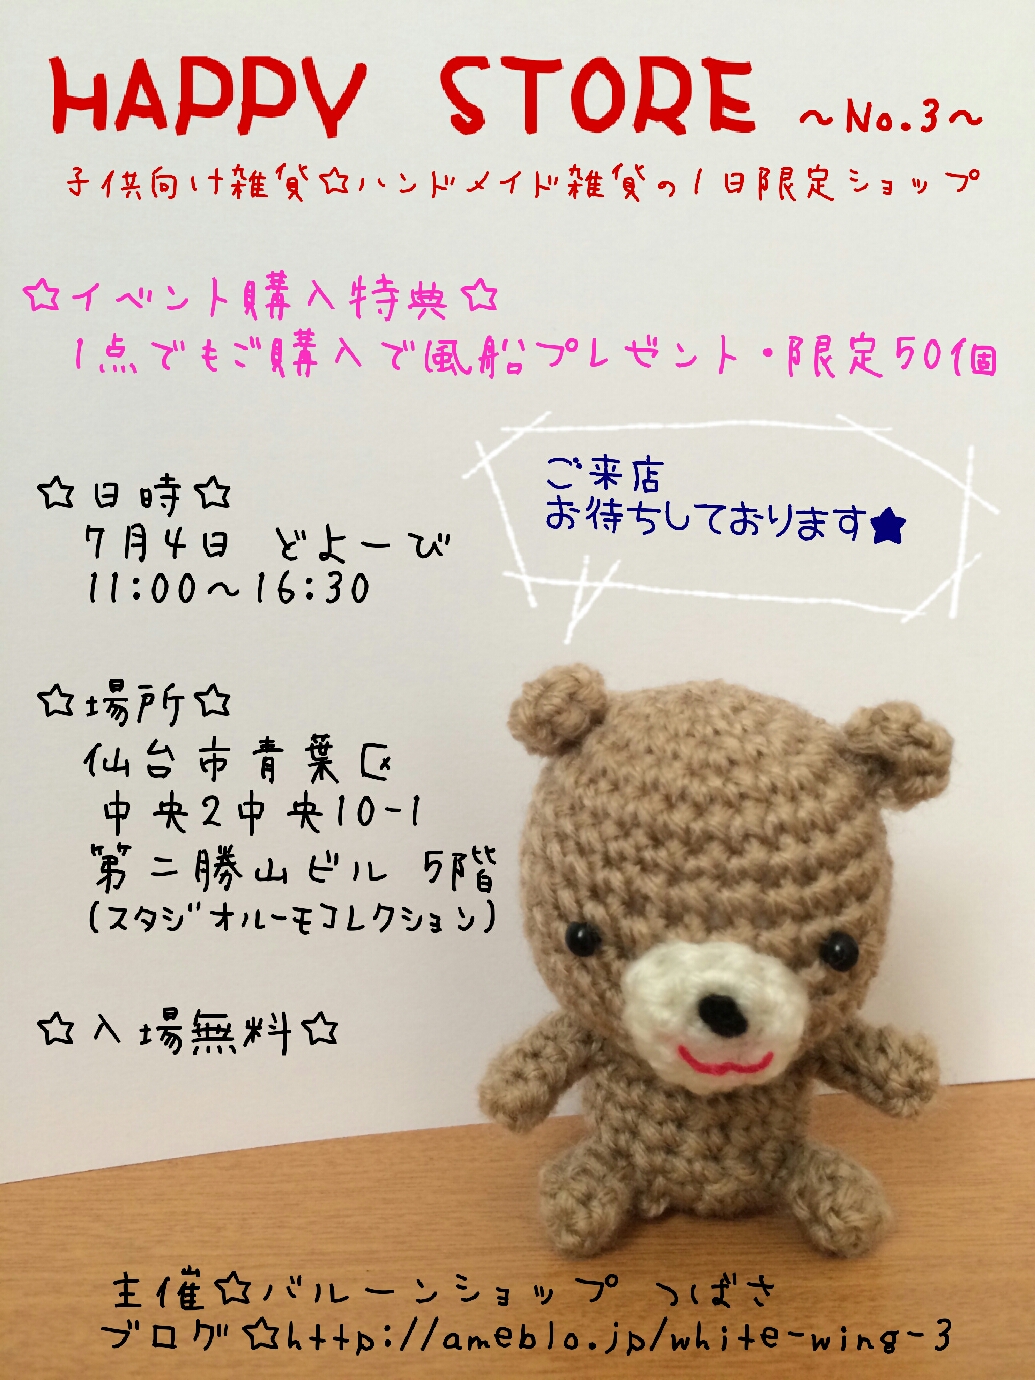 HAPPY STORE ～No.3～
子供向け雑貨☆ハンドメイド雑貨の1日限定ショップ
☆イベント購入特典☆
1点でもご購入で風船プレゼント・限定50個
ご来店
お待ちしております★
☆日時☆
7月4日 どよーび
11:00～16:30
☆場所☆
仙台市青葉区
中央2中央10-1
第二勝山ビル 5階
(スタジオルーモコレクション)
☆入場無料☆
主催☆バルーンショップ つばさ
ブログ☆http://ameblo.jp/white-wing-3